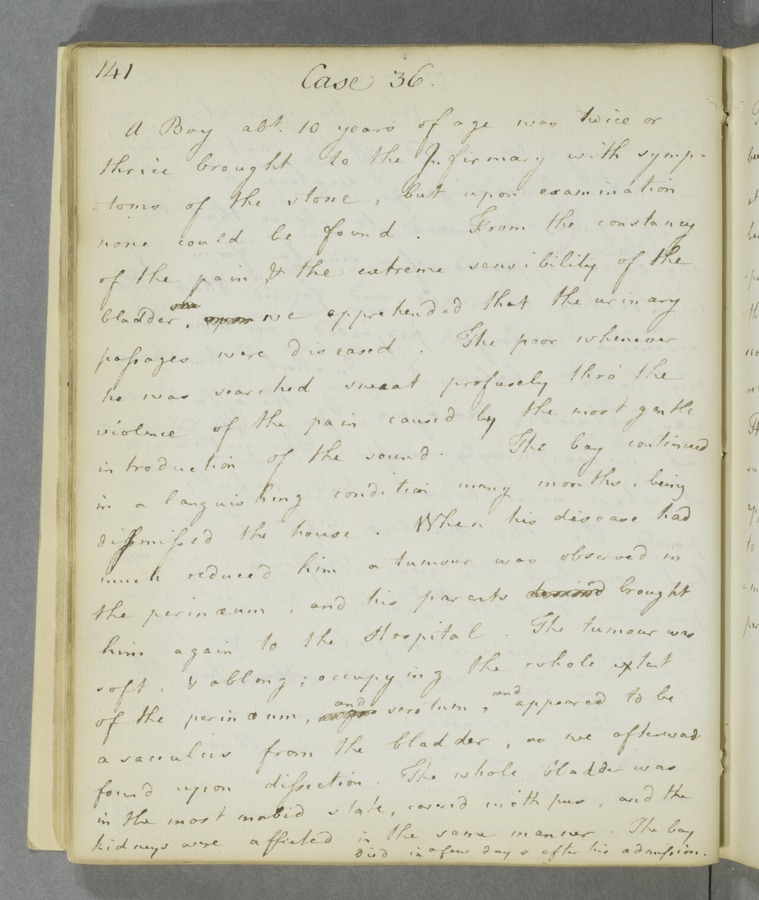 141
Case 36.
A Boy abt. 10 years of age was twice or
thrice brought to the Infirmary with symp-
=toms of the stone, but upon examination
none could be found. From the constancy
of the pain & the extreme sensibility of the
bladder, we apprehended that the urinary
passages were diseased. The poor whenever
he was searched sweat profusely thro' the
violence of the pain caused by the most gentle
introduction of the sound. The boy continued
in a languishing condition many months, being
dissmissed the house. When his disease had
much reduced him a tumour was observed in
the perinæum, and his parents brought
him again to the Hospital. The tumour was
soft, & oblong; occupying the whole extent
of the perinæum, and scrotum, and appeared to be
a sacculus from the bladder, as we afterwad
found upon dissection. The whole bladder was
in the most mabid state, covered with pus, and the
kidneys were affected in the same manner. The boy
died in a few days after his admission.